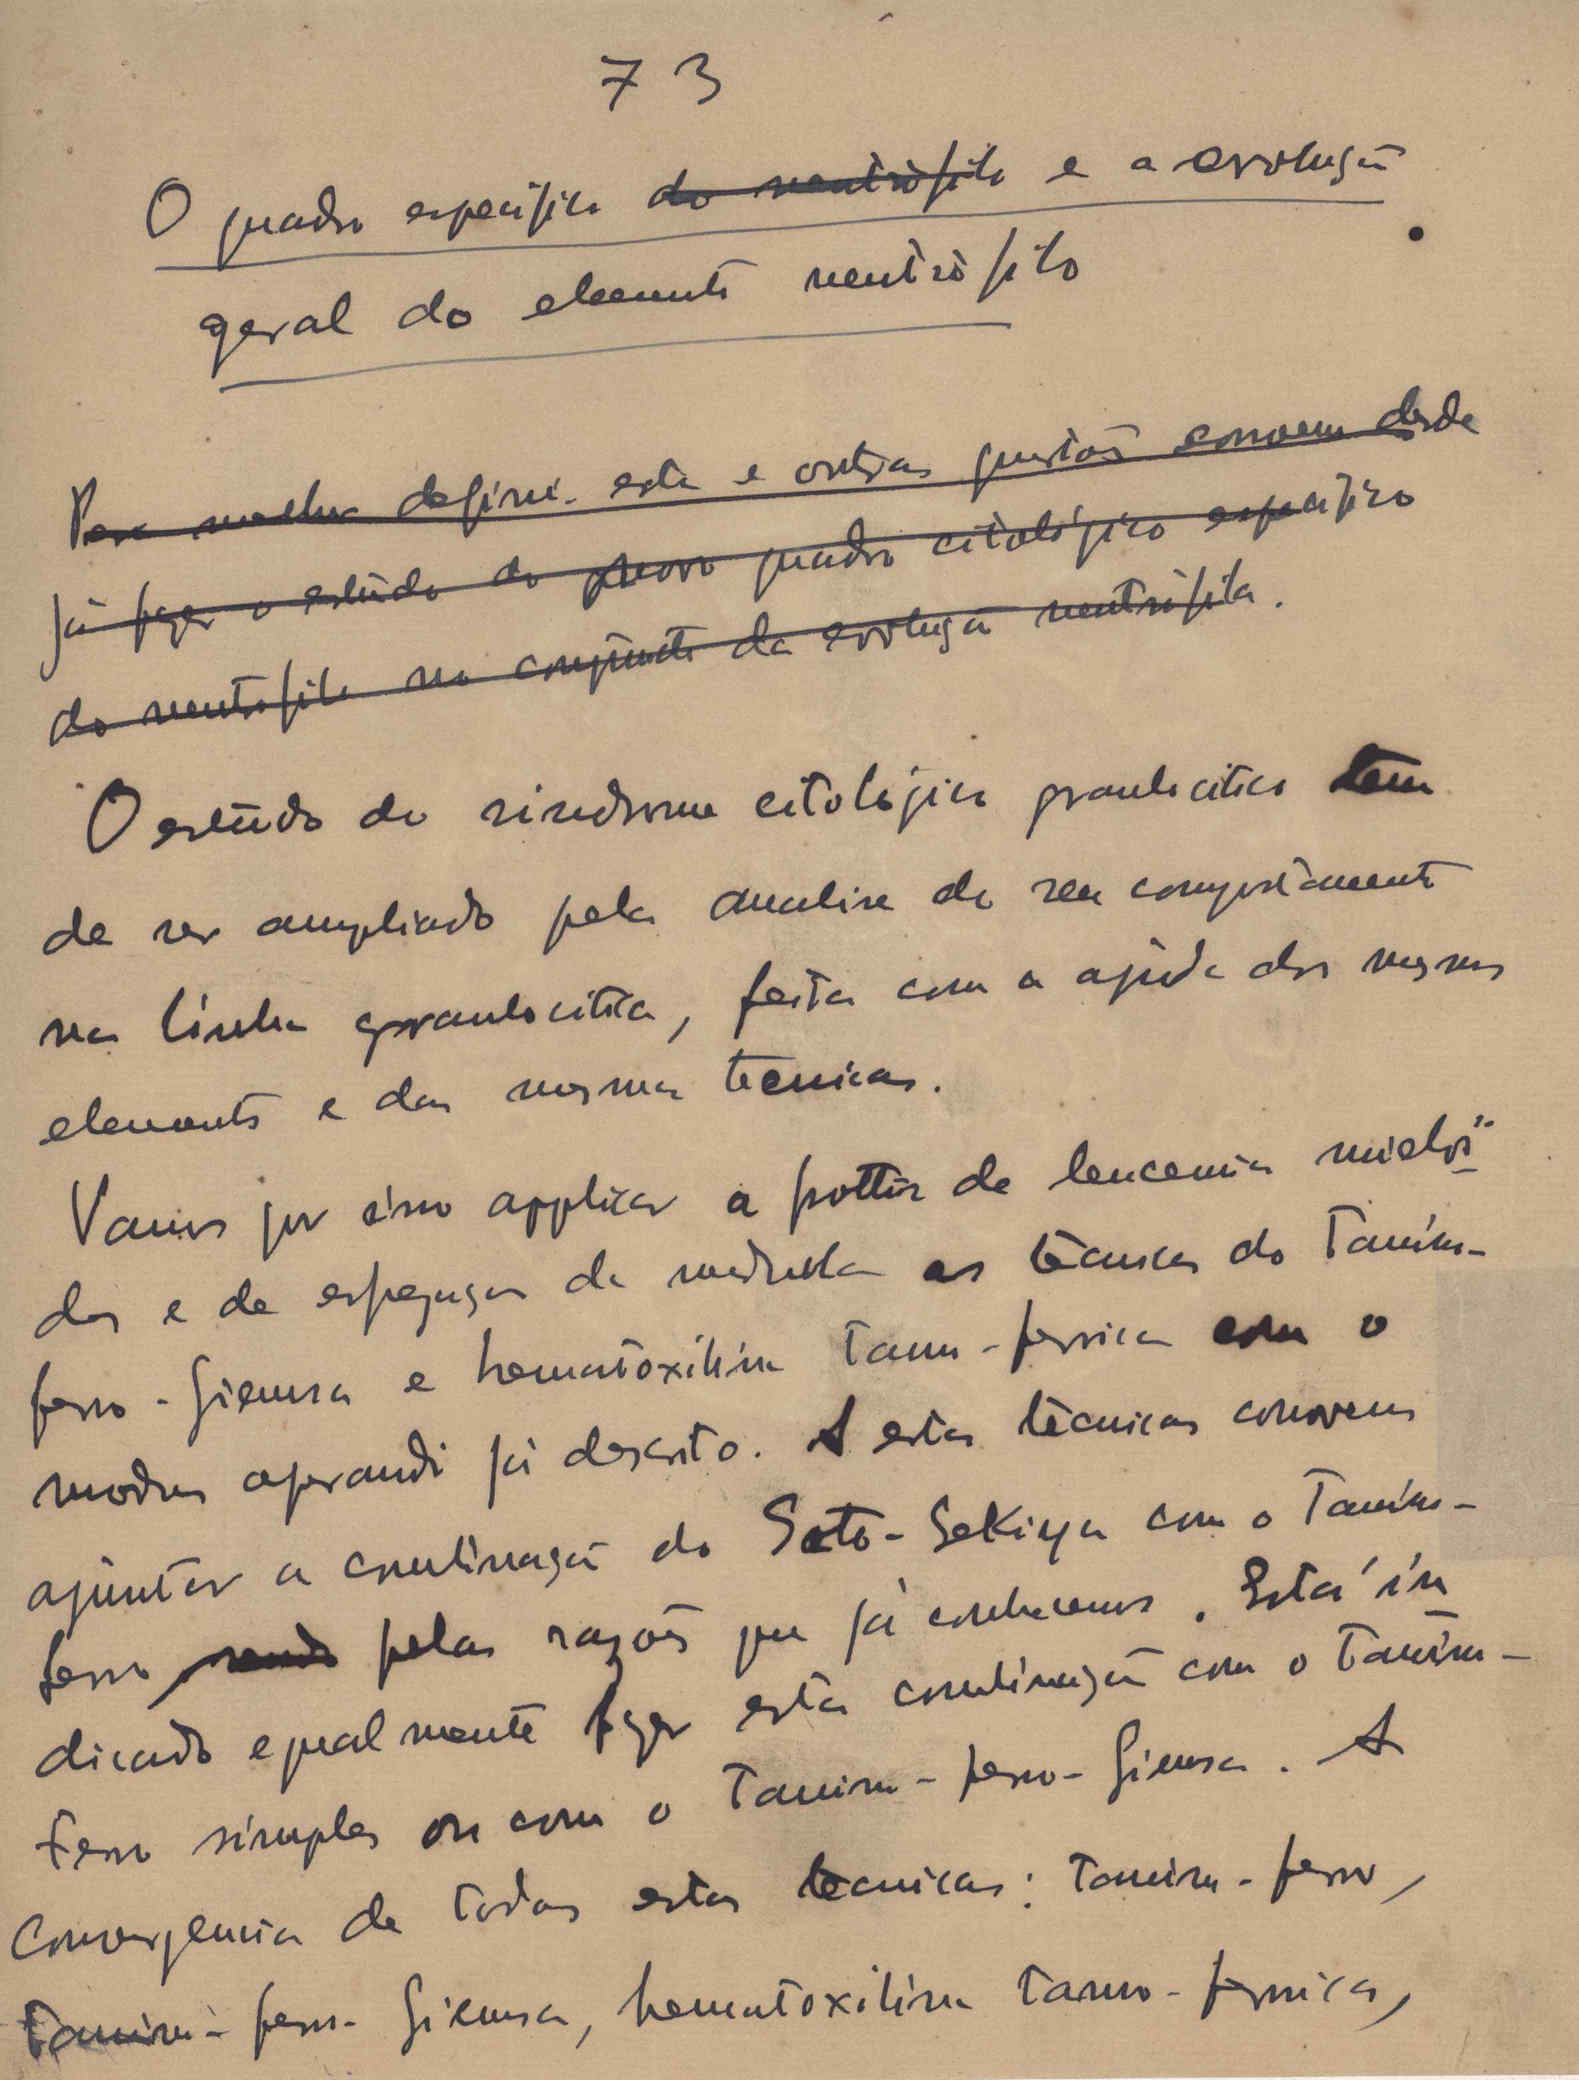 73
O quadro especifico do neutrófilo e a evolução
geral do elemento neutrófilo
Para melhor definir esta e outras questões convem desde
já fazer o estudo do quadro citológico especifico
do neutrofilo no conjunto da evolução neutrófila.
O estudo do sindrome citológico granulocitico tem
de ser ampliado pela analise do seu comportamento
na linha granulocitica, feita com a ajuda dos mesmos
elementos e das mesmas tecnicas.
Vamos por isso applicar a frottis de leucemia mieloi
des e de esfregaços de medulla as técnicas do Tanino-
ferro-Giemsa e hematoxilina Tano-ferrica com o
modus operandi já descrito. A estas técnicas convem
ajuntar a combinação do Sato-Sekiya com o Tanino-
ferro, pelas razões que já conhecemos. Está in
dicado egualmente fazer esta combinação com o Tanino-
Ferro simples ou com o Tanino-ferro-Giemsa. A
convergencia de todas estas técnicas: Tanino-ferro,
Tanino-ferro-Giemsa, hematoxilina Tanno-ferrica,